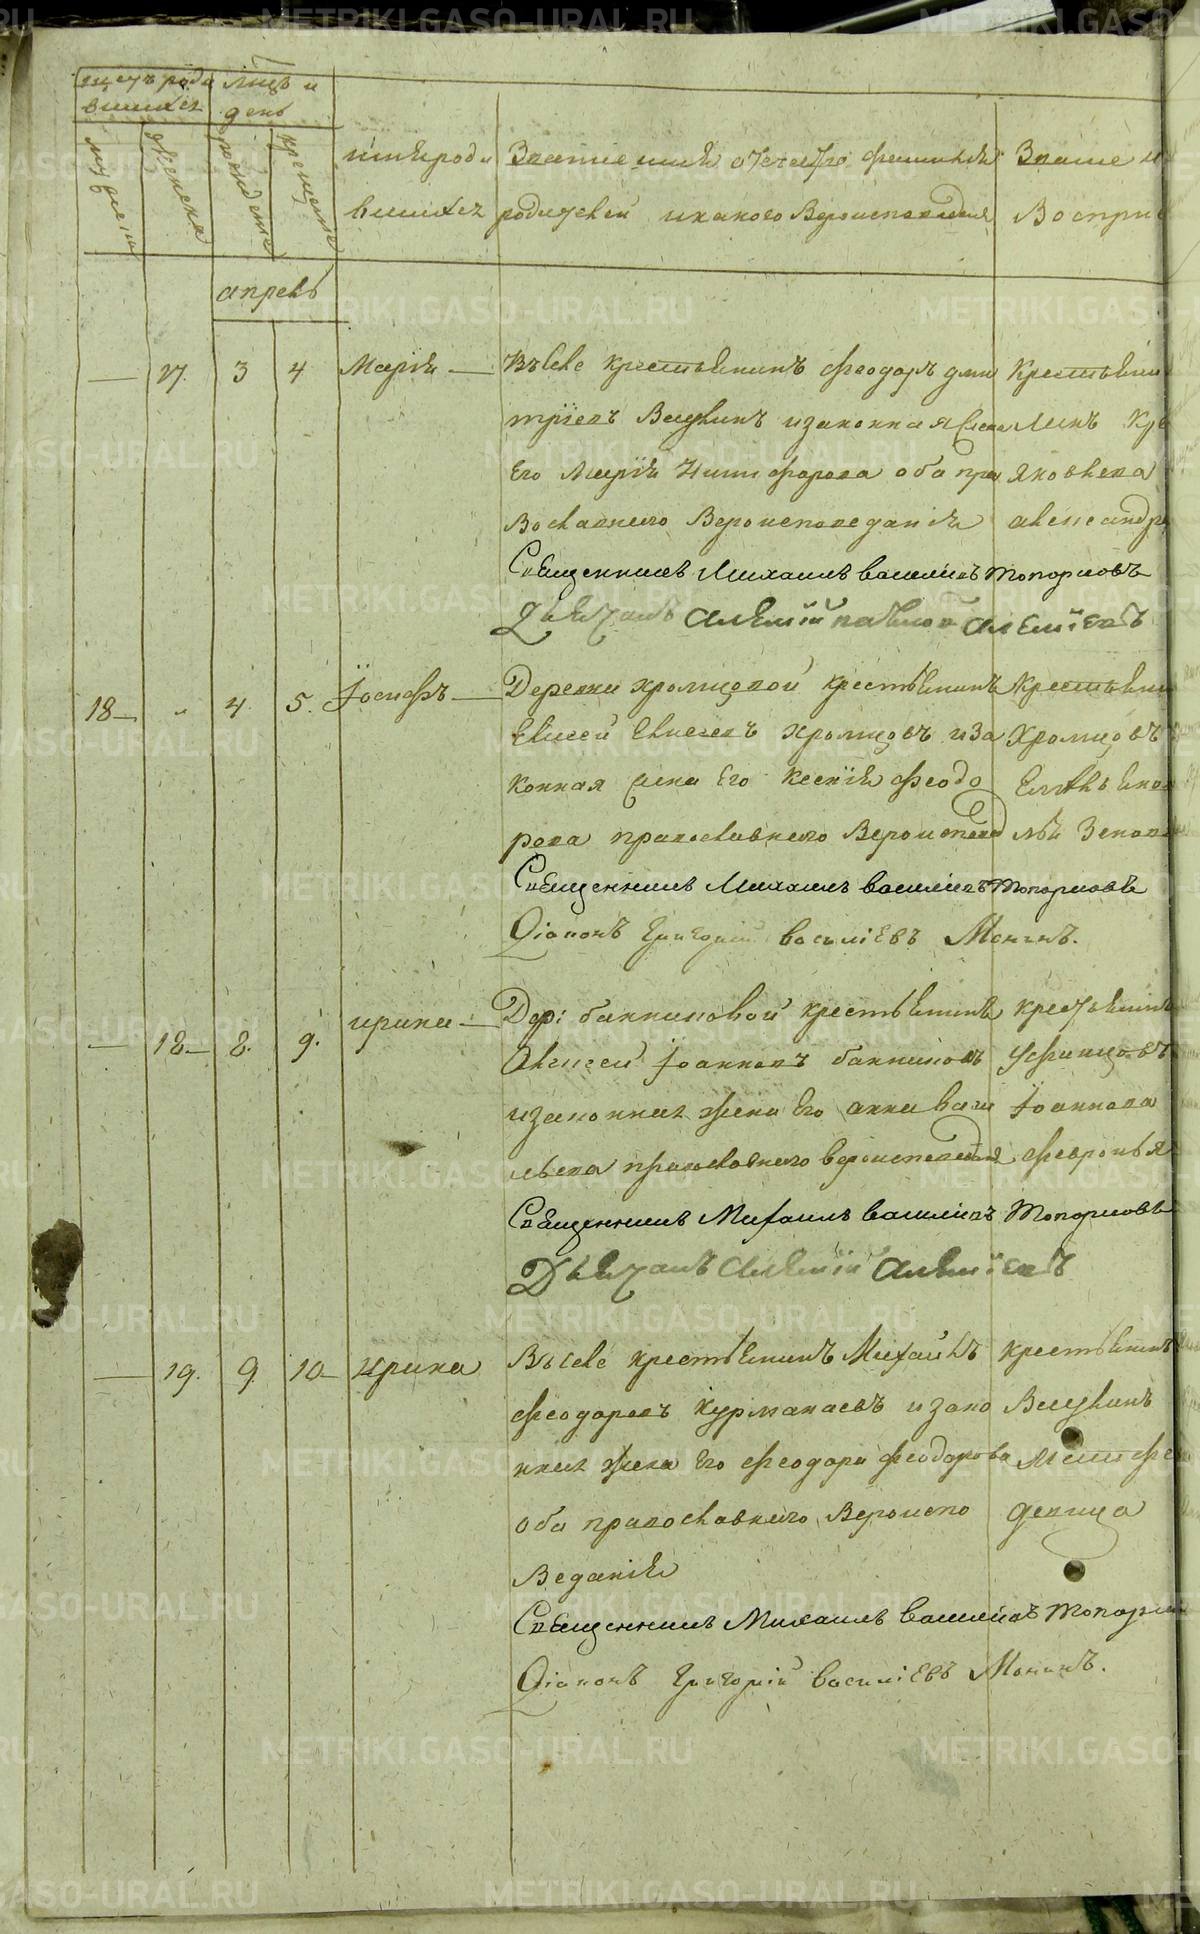 счетъ роди
вшихся
мцъ и
день
мужеска
женска
рожденiя
крещенiя
имя роди
вшихся
Званiе имя отечество фамилiя
родителей и какого вероисповеданiя
Званiе и
Воспрiе
апрель
— 17. 3 4 Марiя —
Въ селе крестьянинъ Феодоръ Дми
трiевъ Вшулинъ и законная жена
его Марiя Никифорова оба пра
вославнаго вероисповеданiя
Крестьяни
Яковлева
александр
Священникъ Михаилъ Васильевъ Топорковъ
Дьячокъ Алексiй Павловъ Алексiевъ
18 — „ 4 5. Iосифъ —
Деревни Хромцовой крестьянинъ
Елисей Елисеевъ Хромцовъ и за
конная жена его Ксенiя Феодо
рова православнаго вероисповед
Крестьяни
Хромцовъ
Священникъ Михаилъ Васильевъ Топорковъ
Дiаконъ Григорiй Васильевъ Монинъ.
— 18 — 8. 9. ирина —
Дер: банниковой крестьянинъ
Алексей Iоанновъ банниковъ
и законная жена его анна Васи
льева православнаго вероисповеданiя
крестьянинъ
Уфинцовъ
Iоаннова
февронья
Священникъ Михаилъ Васильевъ Топорковъ
Дьячокъ Алексiй Алексiевъ
— 19. 9. 10 — Ирина
Въ селе крестьянинъ Михаилъ
Феодоровъ Курманаевъ и зако
нная жена его Феодора Феодорова
оба православнаго вероиспо
веданiя
крестьянинъ
Вшулинъ
девица
Священникъ Михаилъ Васильевъ Топорк
Дiаконъ Григорiй Васильевъ Монинъ.
METRIKI.GASO-URAL.RU